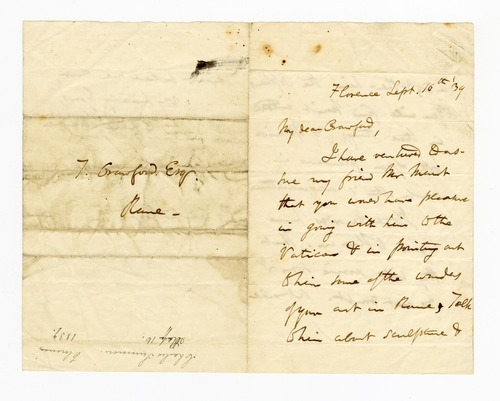 T. Crawford Esq.
Rome —
Charles Sumner.
Sept. 16
Florence
1839.
Florence Sept. 16th '39
My dear Crawford,
I have ventured to as-
sure my friend Mr
that you would have pleasure
in going with him to the
Vatican & in pointing out
to him some of the wonders
of your art in Rome. Talk
to him about sculpture &